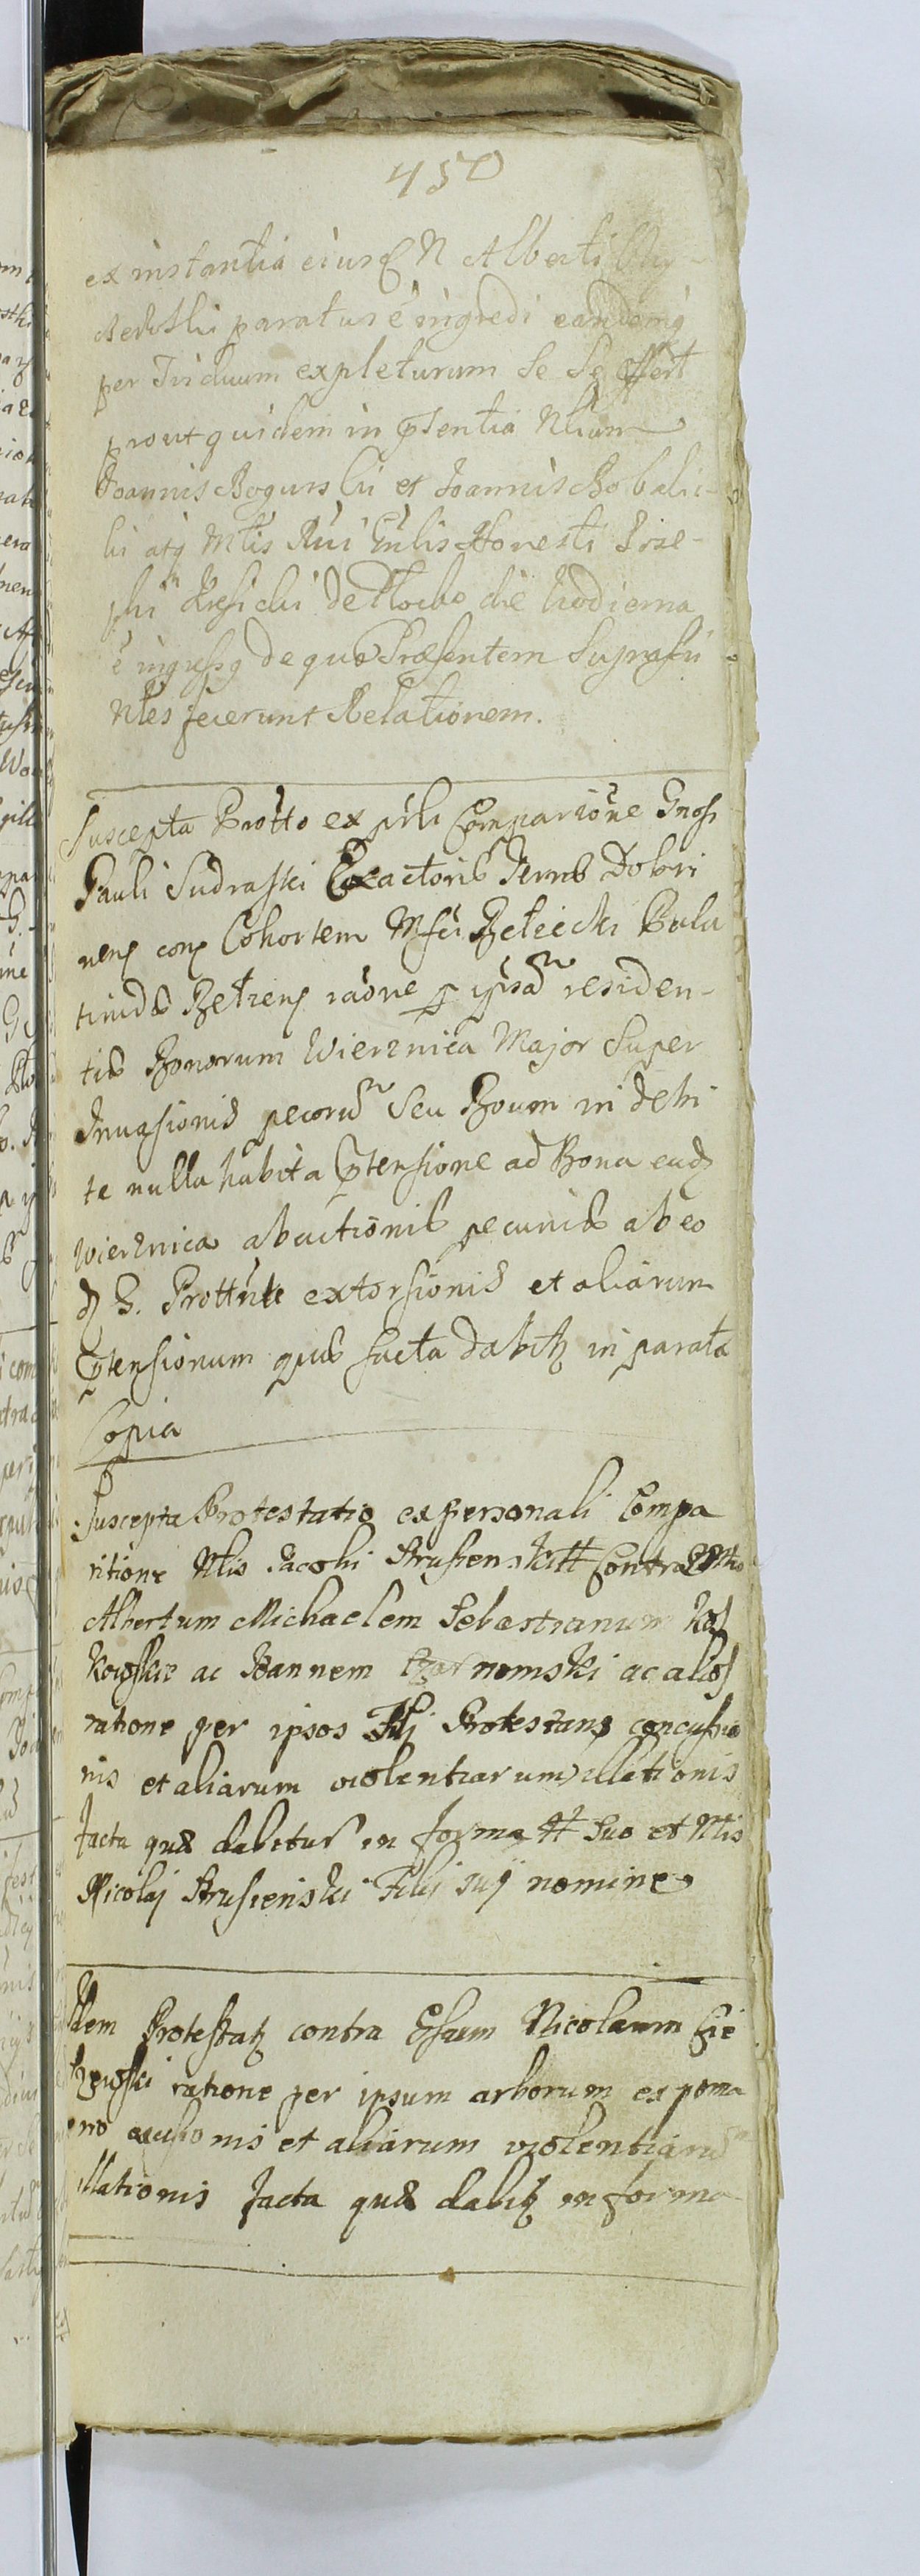 450
ex instantia eiusq N Alberti
paratus e ingredi eandemq
per Triduum expleturum se se offert
prout quidem in pntentia Nlium
Joannis Bogurskii et Joannis Bobalic-
ki atq Mtis Rni Gnlis Honesti Jose-
phi de Plocko die hodierna
e ingressq de quo Præsentem Suprasti
Nles fecerunt Relationem.
Suscepta Protto ex prli Comparione Gnosi
Pauli Sudraski Exactoris Terris Dobri
nens cora Cohortem Mfci Bełżecki Pala
tinidis Bełzens raone p ipsam residen-
tis Bonorum Wierznica Major super
Invasionis pecorum seu Boum in debi
te nulla habita Ptensione ad Bona eadz
Wierznica abactionis pecuniæ ab eo
d G. Prottnte extorsionis et aliarum
Ptensionum quæ facta dabitz in parata
Copia
Suscepta Protestatio ex personali Compa
ritione Nlis Jacobi contra
Albertum Michaelem Sebastianum
kowskie ac Joannem ac alios
ratione per ipsos Filij Protestans concussio
nis et aliarum violentiarum illationis
facta quæ dabitur in forma tt suo et Nlis
Nicolaj Filij suij nomine
Idem Protestatz contra Gfsum Nicolaum Cie
ratione per ipsum arborum ex poma
rio et aliarum violentiarum
illationis facta quæ dabitz in forma